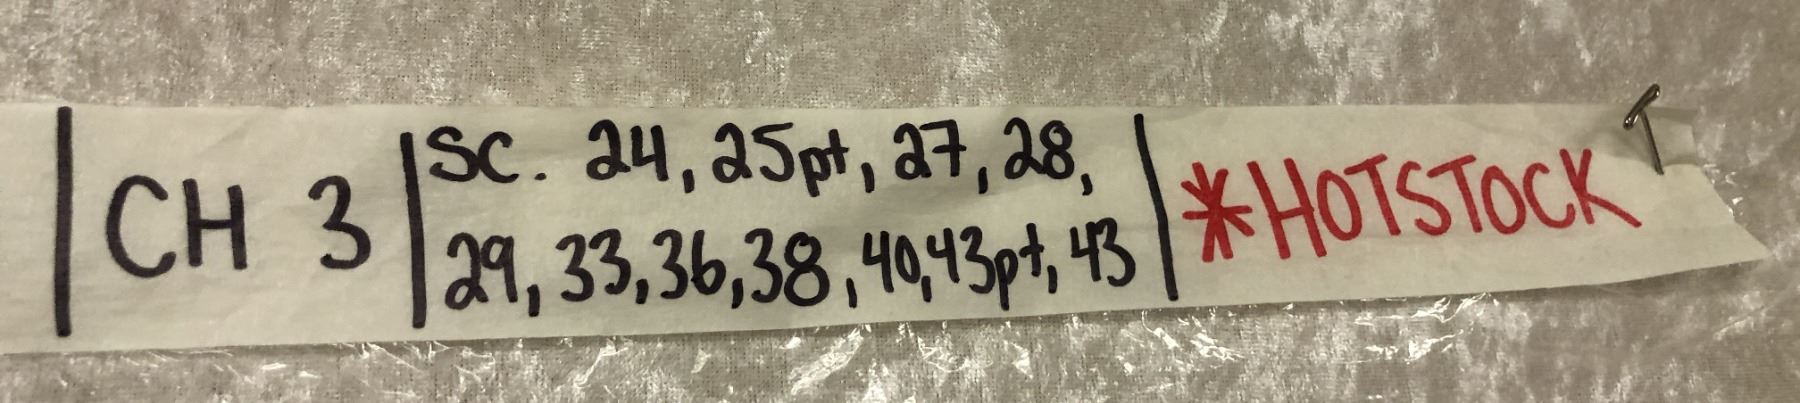 CH 3
SC. 24, 25pt, 27, 28,
29, 33, 36, 38, 40, 43pt, 43
*HOTSTOCK